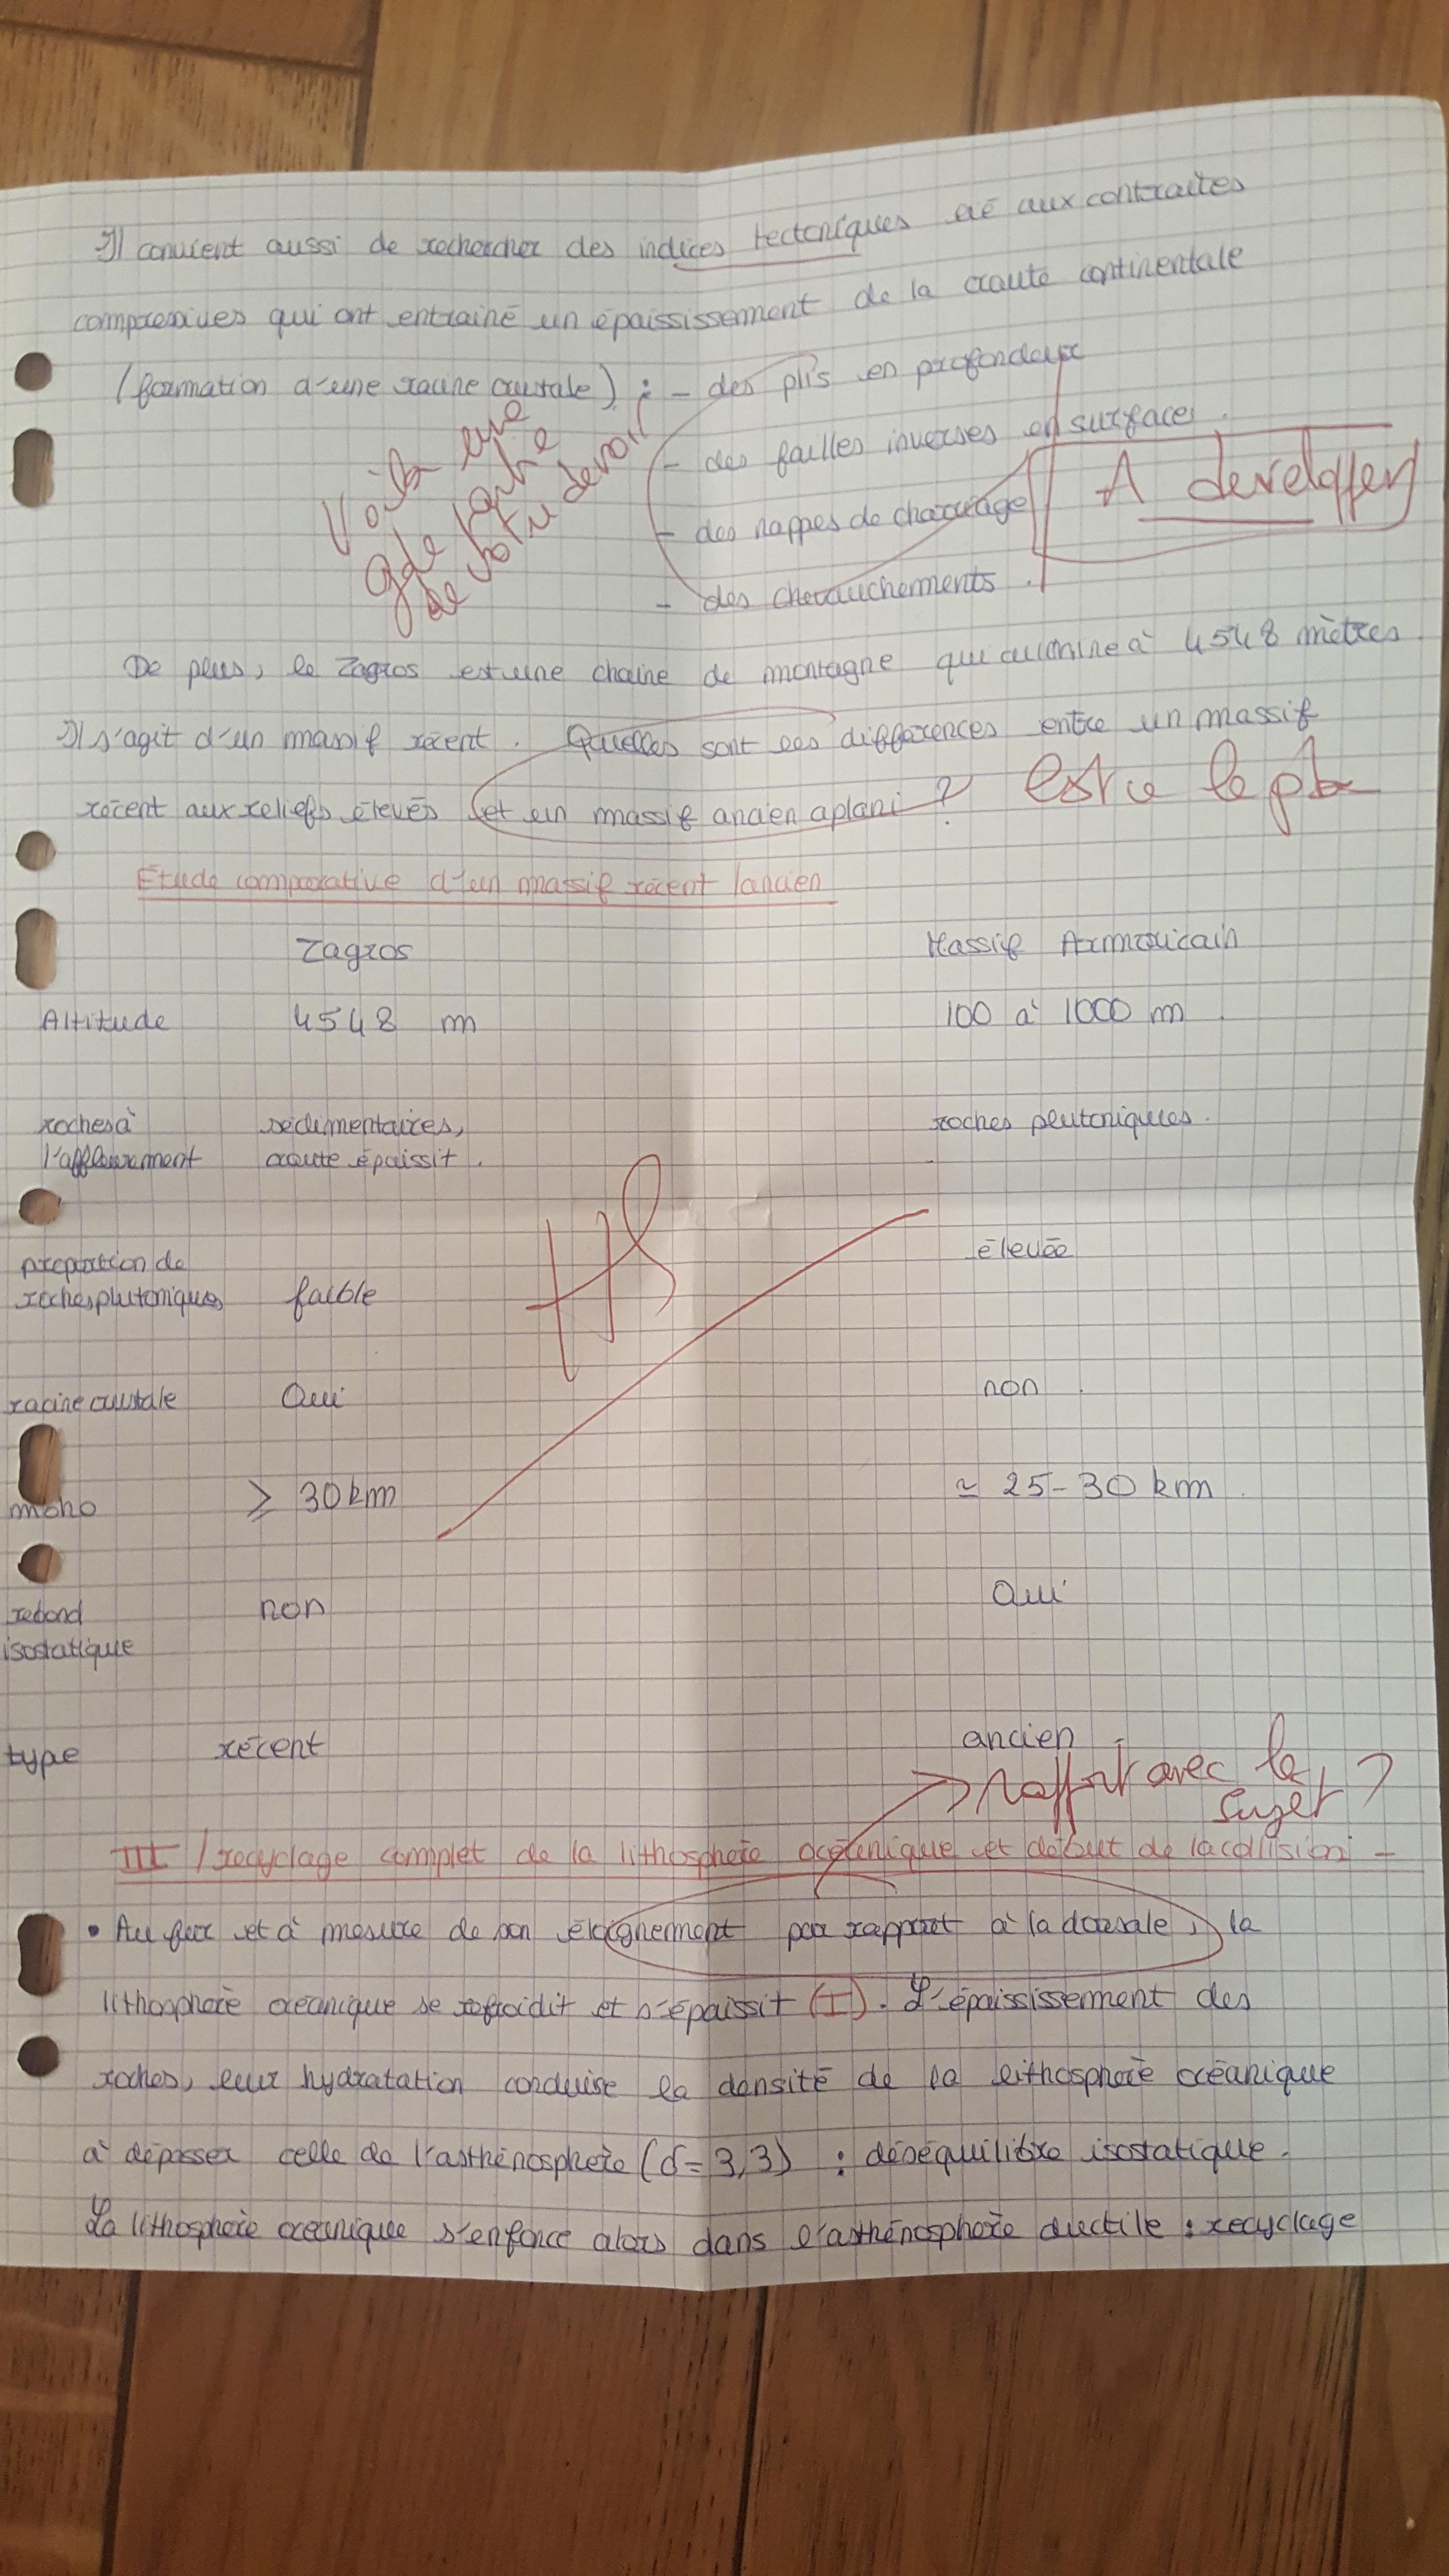 Il convient aussi de rechercher des indices tectoniques lié aux contraites
compressives qui ont entrainé un épaississement de la croute continentale
(formation d'une racine crustale) : - des plis en profondeur
- des failles inverses en surfaces.
- des nappes de charriage
- des chevauchements.
Voilà une
gde partie
de votre devoir
A developper
De plus, le Zagros est une chaine de montagne qui culmine à 4548 mètres
Il s'agit d'un massif récent. Quelles sont les différences entre un massif
récent aux reliefs élevés et un massif ancien aplani ?
est ce le pb
Etude comparative d'un massif récent / ancien
Zagros Massif Armoricain
Altitude 4548 m 100 à 1000 m
roches à sédimentaires, roches plutoniques.
l'affleurement croute épaissit.
proportion de élevée
roches plutoniques faible
HS
racine crustale Oui non
moho ⩾ 30 km ≃ 25-30 km
rebond non Oui
isostatique
type récent ancien
rapport avec le
sujet ?
III / recyclage complet de la lithosphère océanique et début de la collision -
• Au fur et à mesure de son éloignement par rapport à la dorsale, la
lithosphère océanique se refroidit et s'épaissit (I). L'épaississement des
roches, leur hydratation conduise la densité de la lithosphère océanique
à dépasser celle de l'asthénosphère (d = 3,3) : déséquilibre isostatique.
La lithosphère océanique s'enfonce alors dans l'asthénosphère ductile : recyclage